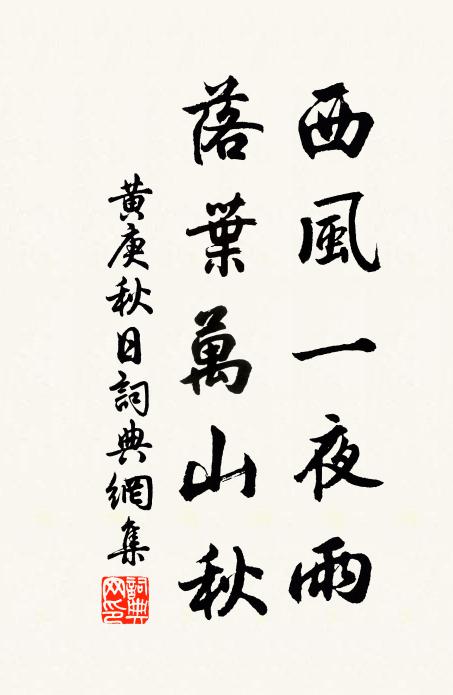 西風一夜雨
落葉萬山秋
黃庚秋日詞典網集
詞典网印